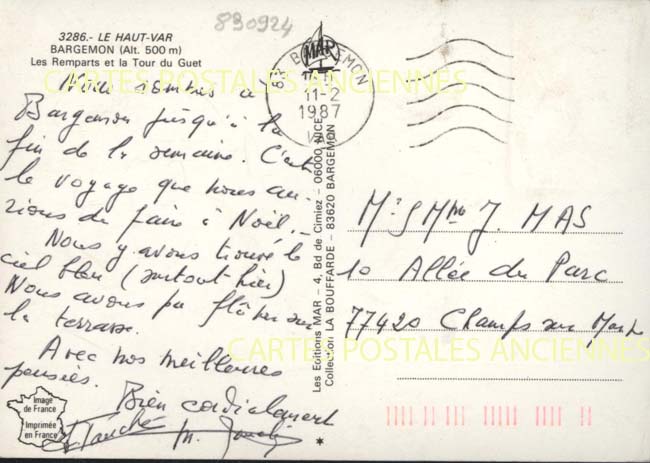 830924
3286.- LE HAUT-VAR
BARGEMON (Alt. 500 m)
Les Remparts et la Tour du Guet
CARTES POSTALES ANCIENNES
Nous sommes à
Bargemon jusqu'à la
fin de la semaine. C'est
le voyage que nous au-
rions dû faire à Noël.
Nous y avons trouvé le
ciel bleu (surtout hier)
Nous avons pu flâner sur
la terrasse.
Avec nos meilleures
pensées.
Bien cordialement
Image
de France
Imprimée
en France
MAR
BARGEMON
11-2
1987
VAR
Les Editions MAR - 4, Bd de Cimiez - 06000 NICE
Collection LA BOUFFARDE - 83620 BARGEMON
Mr & Mme J. MAS
10 Allée du Parc
77420 Champs sur Marne
CARTES POSTALES ANCIENNES